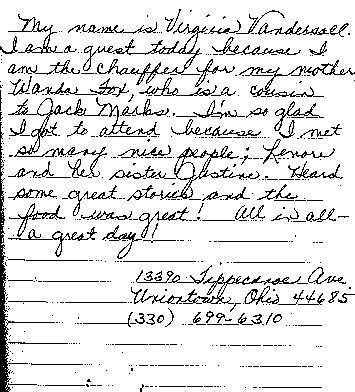 My name is Virginia Vandersall.
I am a guest today because I
am the chauffer for my mother
Wanda Fox, who is a cousin
to Jack Marks. I'm so glad
I got to attend because I met
so many nice people; Lenore
and her sister Justine. Heard
some great stories and the
food was great! All in all-
a great day!
13390 Tippecanoe Ave
Uniontown, Ohio 44685
(330) 699-6310